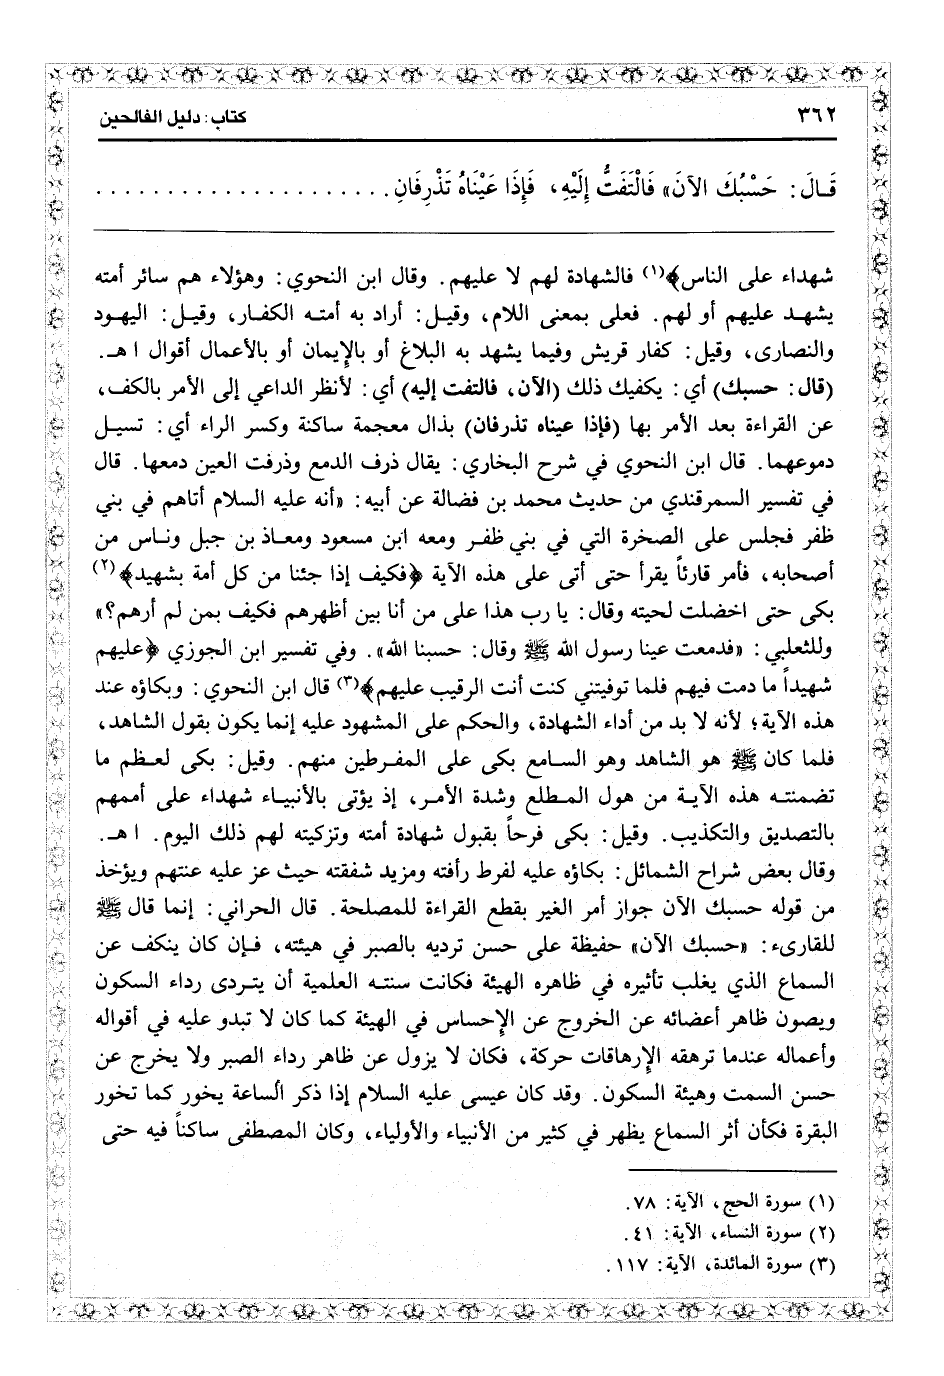 ٣٦٢ كتاب: دليل الفالحين
قَالَ: حَسْبُكَ الآنَ» فَالْتَفَتُّ إِلَيْهِ، فَإِذَا عَيْنَاهُ تَذْرِفَانِ. . . . . . . . . . . . . . . . . . . . .
شهداء على الناس﴾(١) فالشهادة لهم لا عليهم. وقال ابن النحوي: وهؤلاء هم سائر أمته
يشهد عليهم أو لهم. فعلى بمعنى اللام، وقيل: أراد به أمته الكفار، وقيل: اليهود
والنصارى، وقيل: كفار قريش وفيما يشهد به البلاغ أو بالإيمان أو بالأعمال أقوال اهـ.
(قال: حسبك) أي: يكفيك ذلك (الآن، فالتفت إليه) أي: لأنظر الداعي إلى الأمر بالكف،
عن القراءة بعد الأمر بها (فإذا عيناه تذرفان) بذال معجمة ساكنة وكسر الراء أي: تسيل
دموعهما. قال ابن النحوي في شرح البخاري: يقال ذرف الدمع وذرفت العين دمعها. قال
في تفسير السمرقندي من حديث محمد بن فضالة عن أبيه: «أنه عليه السلام أتاهم في بني
ظفر فجلس على الصخرة التي في بني ظفر ومعه ابن مسعود ومعاذ بن جبل وناس من
أصحابه، فأمر قارئاً يقرأ حتى أتى على هذه الآية ﴿فكيف إذا جئنا من كل أمة بشهيد﴾(٢)
بكى حتى اخضلت لحيته وقال: يا رب هذا على من أنا بين أظهرهم فكيف بمن لم أرهم؟»
وللثعلبي: «فدمعت عينا رسول الله ﷺ وقال: حسبنا الله». وفي تفسير ابن الجوزي ﴿عليهم
شهيداً ما دمت فيهم فلما توفيتني كنت أنت الرقيب عليهم﴾(٣) قال ابن النحوي: وبكاؤه عند
هذه الآية؛ لأنه لا بد من أداء الشهادة، والحكم على المشهود عليه إنما يكون بقول الشاهد،
فلما كان ﷺ هو الشاهد وهو السامع بكى على المفرطين منهم. وقيل: بكى لعظم ما
تضمنته هذه الآية من هول المطلع وشدة الأمر، إذ يؤتى بالأنبياء شهداء على أممهم
بالتصديق والتكذيب. وقيل: بكى فرحاً بقبول شهادة أمته وتزكيته لهم ذلك اليوم. اهـ.
وقال بعض شراح الشمائل: بكاؤه عليه لفرط رأفته ومزيد شفقته حيث عز عليه عنتهم ويؤخذ
من قوله حسبك الآن جواز أمر الغير بقطع القراءة للمصلحة. قال الحراني: إنما قال ﷺ
للقارىء: «حسبك الآن» حفيظة على حسن ترديه بالصبر في هيئته، فإن كان ينكف عن
السماع الذي يغلب تأثيره في ظاهره الهيئة فكانت سنته العلمية أن يتردى رداء السكون
ويصون ظاهر أعضائه عن الخروج عن الإحساس في الهيئة كما كان لا تبدو عليه في أقواله
وأعماله عندما ترهقه الإرهاقات حركة، فكان لا يزول عن ظاهر رداء الصبر ولا يخرج عن
حسن السمت وهيئة السكون. وقد كان عيسى عليه السلام إذا ذكر الساعة يخور كما تخور
البقرة فكأن أثر السماع يظهر في كثير من الأنبياء والأولياء، وكان المصطفى ساكناً فيه حتى
(١) سورة الحج، الآية: ٧٨.
(٢) سورة النساء، الآية: ٤١.
(٣) سورة المائدة، الآية: ١١٧.